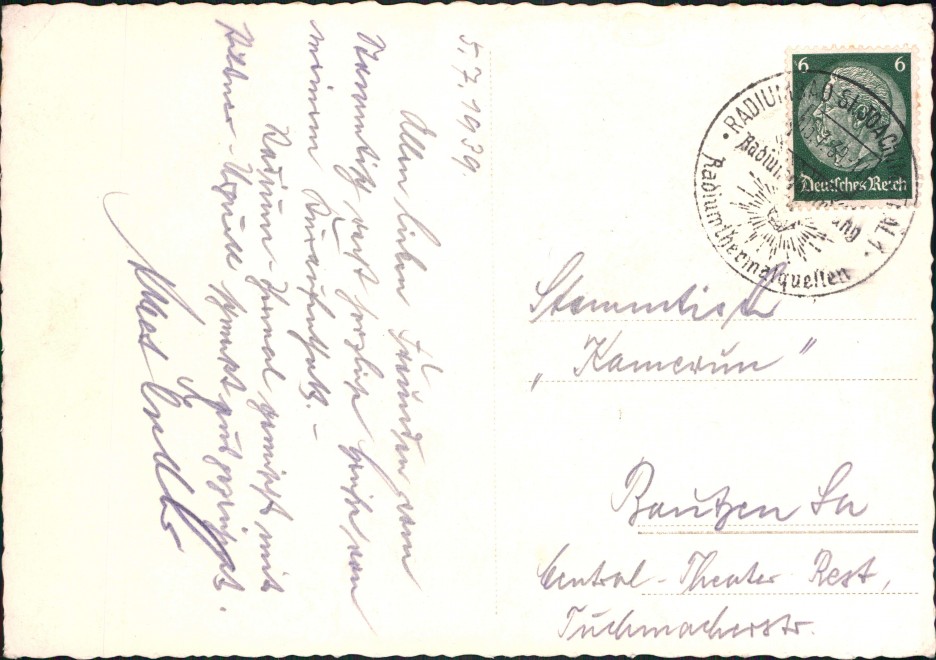 5.7.1939
Allen lieben Freunden vom
Stammtisch recht herzliche Grüße von
meinem Kuraufenthalt. –
Radium-Thermal gemischt mit
Pilsner-Urquell schmeckt
6 6
Deutsches Reich
RADIUMBAD ST. JOACHIMSTHAL 1
Radiumthermalquellen
Stammtisch
„Kamerun"
Bautzen Sa
Central-Theater Rest,
Tuchmacherstr.